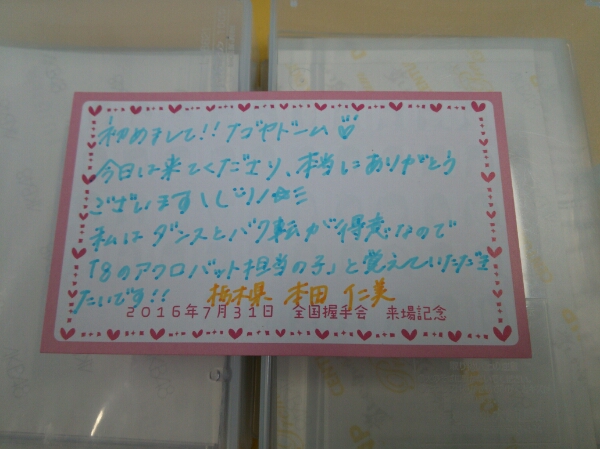 初めまして!! ナゴヤドーム♡
今日は来てくださり、本当にありがとう
ございます\(^^)/☆彡
私はダンスとバク転が得意なので
「8のアクロバット担当の子」と覚えていただき
たいです!! 栃木県 本田 仁美
2016年7月31日 全国握手会 来場記念